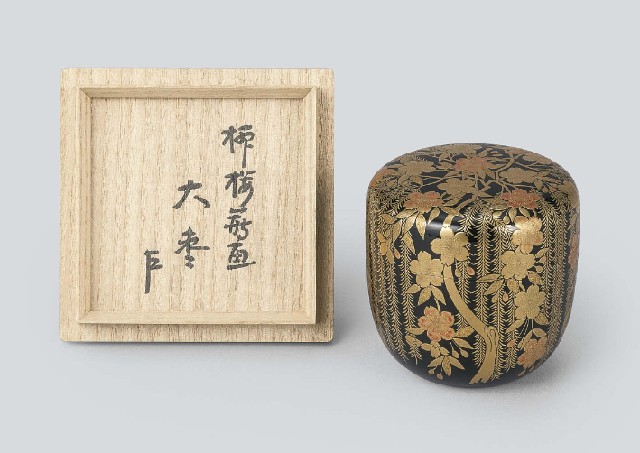 柳桜蒔画
大棗